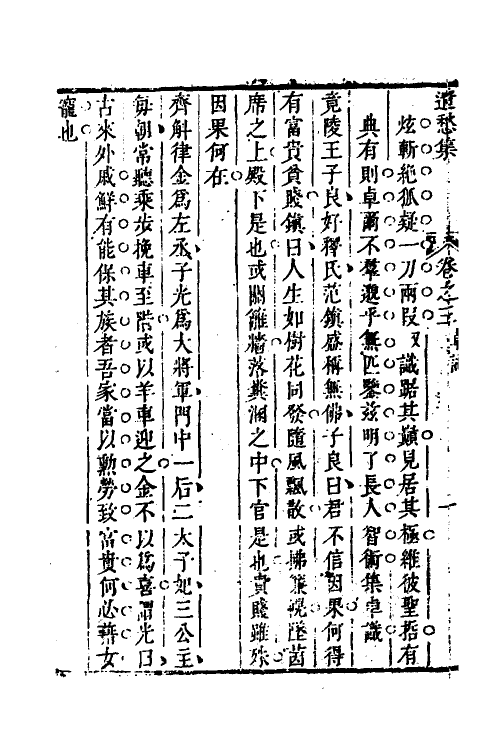 遣愁集 卷之十
炫斬絶狐疑一刀兩段 識踞其巔見居其極維彼聖哲有
典有則卓爾不羣邈乎無匹鑒兹明了長人智術集卓識
竟陵王子良好釋氏范鎭盛稱無佛子良曰君不信因果何得
有富貴貧賤鎭曰人生如樹花同發隨風飄散或拂簾幌墜茵
席之上殿下是也或關籬牆落糞溷之中下官是也貴賤雖殊
因果何在
齊斛律金爲左丞子光爲大將軍門中一后二太子妃三公主
每朝常聽乘步挽車至階或以羊車迎之金不以爲喜謂光曰
古來外戚鮮有能保其族者吾家當以勲勞致富貴何必藉女
寵也